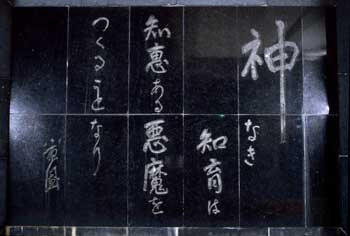 神
なき
知育は
知惠ある
悪魔を
つくる𛂞
なり